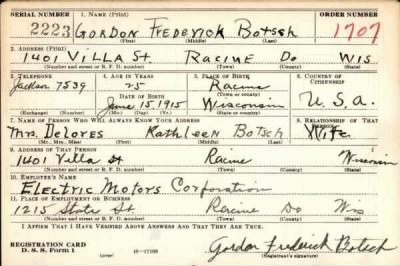 SERIAL NUMBER 1. NAME (Print) ORDER NUMBER
2223 GORDON FREDERICK BOTSCH 1707
(First) (Middle) (Last)
2. ADDRESS (Print)
1401 VILLA St RACINE Do WIS
(Number and street or R. F. D. number) (Town) (County) (State)
3. TELEPHONE 4. AGE IN YEARS 5. PLACE OF BIRTH 6. COUNTRY OF CITIZENSHIP
Jackson 7539 25 Racine
(Town or county)
DATE OF BIRTH
June 15, 1915 Wisconsin U.S.A.
(Exchange) (Number) (Mo.) (Day) (Yr.) (State or country)
7. NAME OF PERSON WHO WILL ALWAYS KNOW YOUR ADDRESS 8. RELATIONSHIP OF THAT PERSON
Mrs. Delores Kathleen Botsch Wife
(Mr., Mrs., Miss) (First) (Middle) (Last)
9. ADDRESS OF THAT PERSON
1401 Villa St Racine Wisconsin
(Number and street or R. F. D. number) (Town) (County) (State)
10. EMPLOYER'S NAME
Electric Motors Corporation
11. PLACE OF EMPLOYMENT OR BUSINESS
1215 State St Racine Do Wis
(Number and street or R. F. D. number) (Town) (County) (State)
I AFFIRM THAT I HAVE VERIFIED ABOVE ANSWERS AND THAT THEY ARE TRUE.
REGISTRATION CARD
D. S. S. Form 1 (over) 16-17105
Gordon Frederick Botsch
(Registrant's signature)